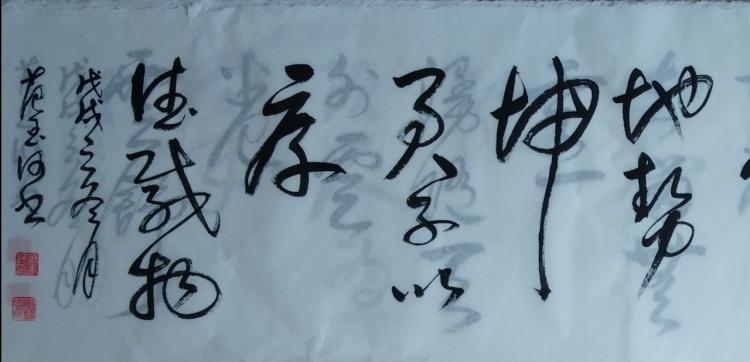 地势
坤
君子以
厚
德载物
戊戌之冬月